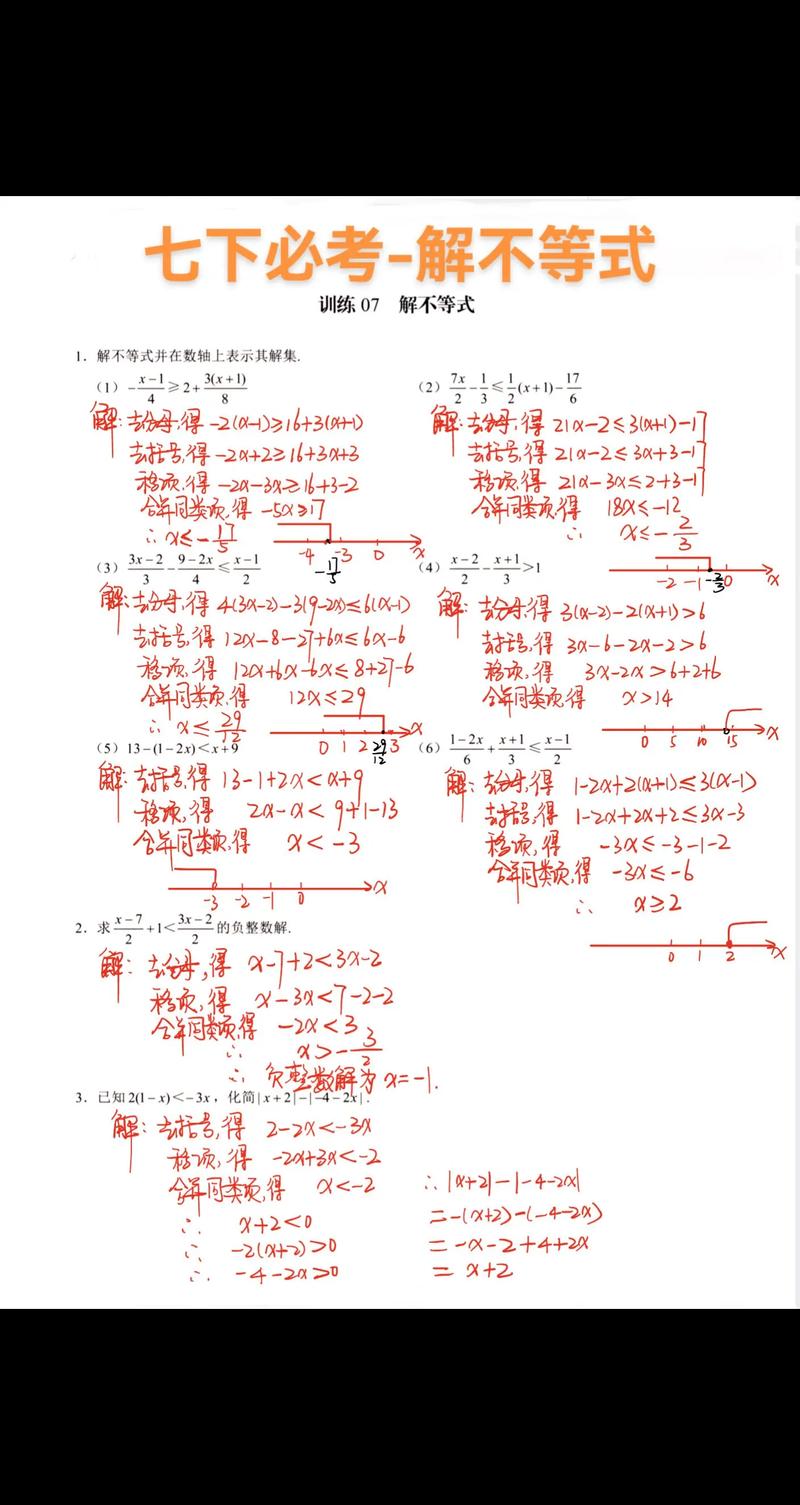 七下必考-解不等式
训练 07 解不等式
1. 解不等式并在数轴上表示其解集.
(1) -(x-1)/4≥2+3(x+1)/8
解:去分母,得 -2(x-1)≥16+3(x+1)
去括号,得 -2x+2≥16+3x+3
移项,得 -2x-3x≥16+3-2
合并同类项,得 -5x≥17
∴ x≤-17/5
-4 -17/5 -3 0 x
(2) 7x/2-1/3≤1/2(x+1)-17/6
解:去分母,得 21x-2≤3(x+1)-17
去括号,得 21x-2≤3x+3-17
移项,得 21x-3x≤2+3-17
合并同类项,得 18x≤-12
∴ x≤-2/3
-2 -1 -2/3 0 x
(3) (3x-2)/3-(9-2x)/4≤(x-1)/2
解:去分母,得 4(3x-2)-3(9-2x)≤6(x-1)
去括号,得 12x-8-27+6x≤6x-6
移项,得 12x+6x-6x≤8+27-6
合并同类项,得 12x≤29
∴ x≤29/12
0 1 2 29/12 3 x
(4) (x-2)/2-(x+1)/3>1
解:去分母,得 3(x-2)-2(x+1)>6
去括号,得 3x-6-2x-2>6
移项,得 3x-2x>6+2+6
合并同类项,得 x>14
0 5 10 15 x
(5) 13-(1-2x)<x+9
解:去括号,得 13-1+2x<x+9
移项,得 2x-x<9+1-13
合并同类项,得 x<-3
-3 -2 -1 0 x
(6) (1-2x)/6+(x+1)/3≤(x-1)/2
解:去分母,得 1-2x+2(x+1)≤3(x-1)
去括号,得 1-2x+2x+2≤3x-3
移项,得 -3x≤-3-1-2
合并同类项,得 -3x≤-6
∴ x≥2
0 1 2 x
2. 求(x-7)/2+1<(3x-2)/2的负整数解.
解:去分母,得 x-7+2<3x-2
移项,得 x-3x<7-2-2
合并同类项,得 -2x<3
∴ x>-3/2
∴ 负整数解为 x=-1.
3. 已知2(1-x)<-3x,化简|x+2|-|-4-2x|.
解:去括号,得 2-2x<-3x
移项,得 -2x+3x<-2
合并同类项,得 x<-2
∴ x+2<0
∴ -2(x+2)>0
∴ -4-2x>0
∴ |x+2|-|-4-2x|
=-(x+2)-(-4-2x)
=-x-2+4+2x
=x+2